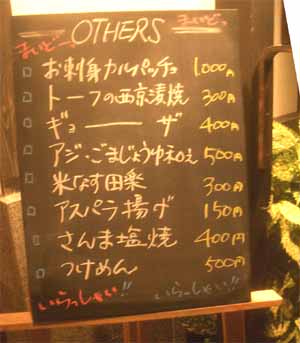 まいどっ OTHERS まいどっ
お刺身カルパッチョ 1,000円
トーフの西京漬焼 300円
ギョーザ 400円
アジ・ごまじょうゆ和え 500円
米なす田楽 300円
アスパラ揚げ 150円
さんま塩焼 400円
つけめん 500円
いらっしゃい!! いらっしゃい!!